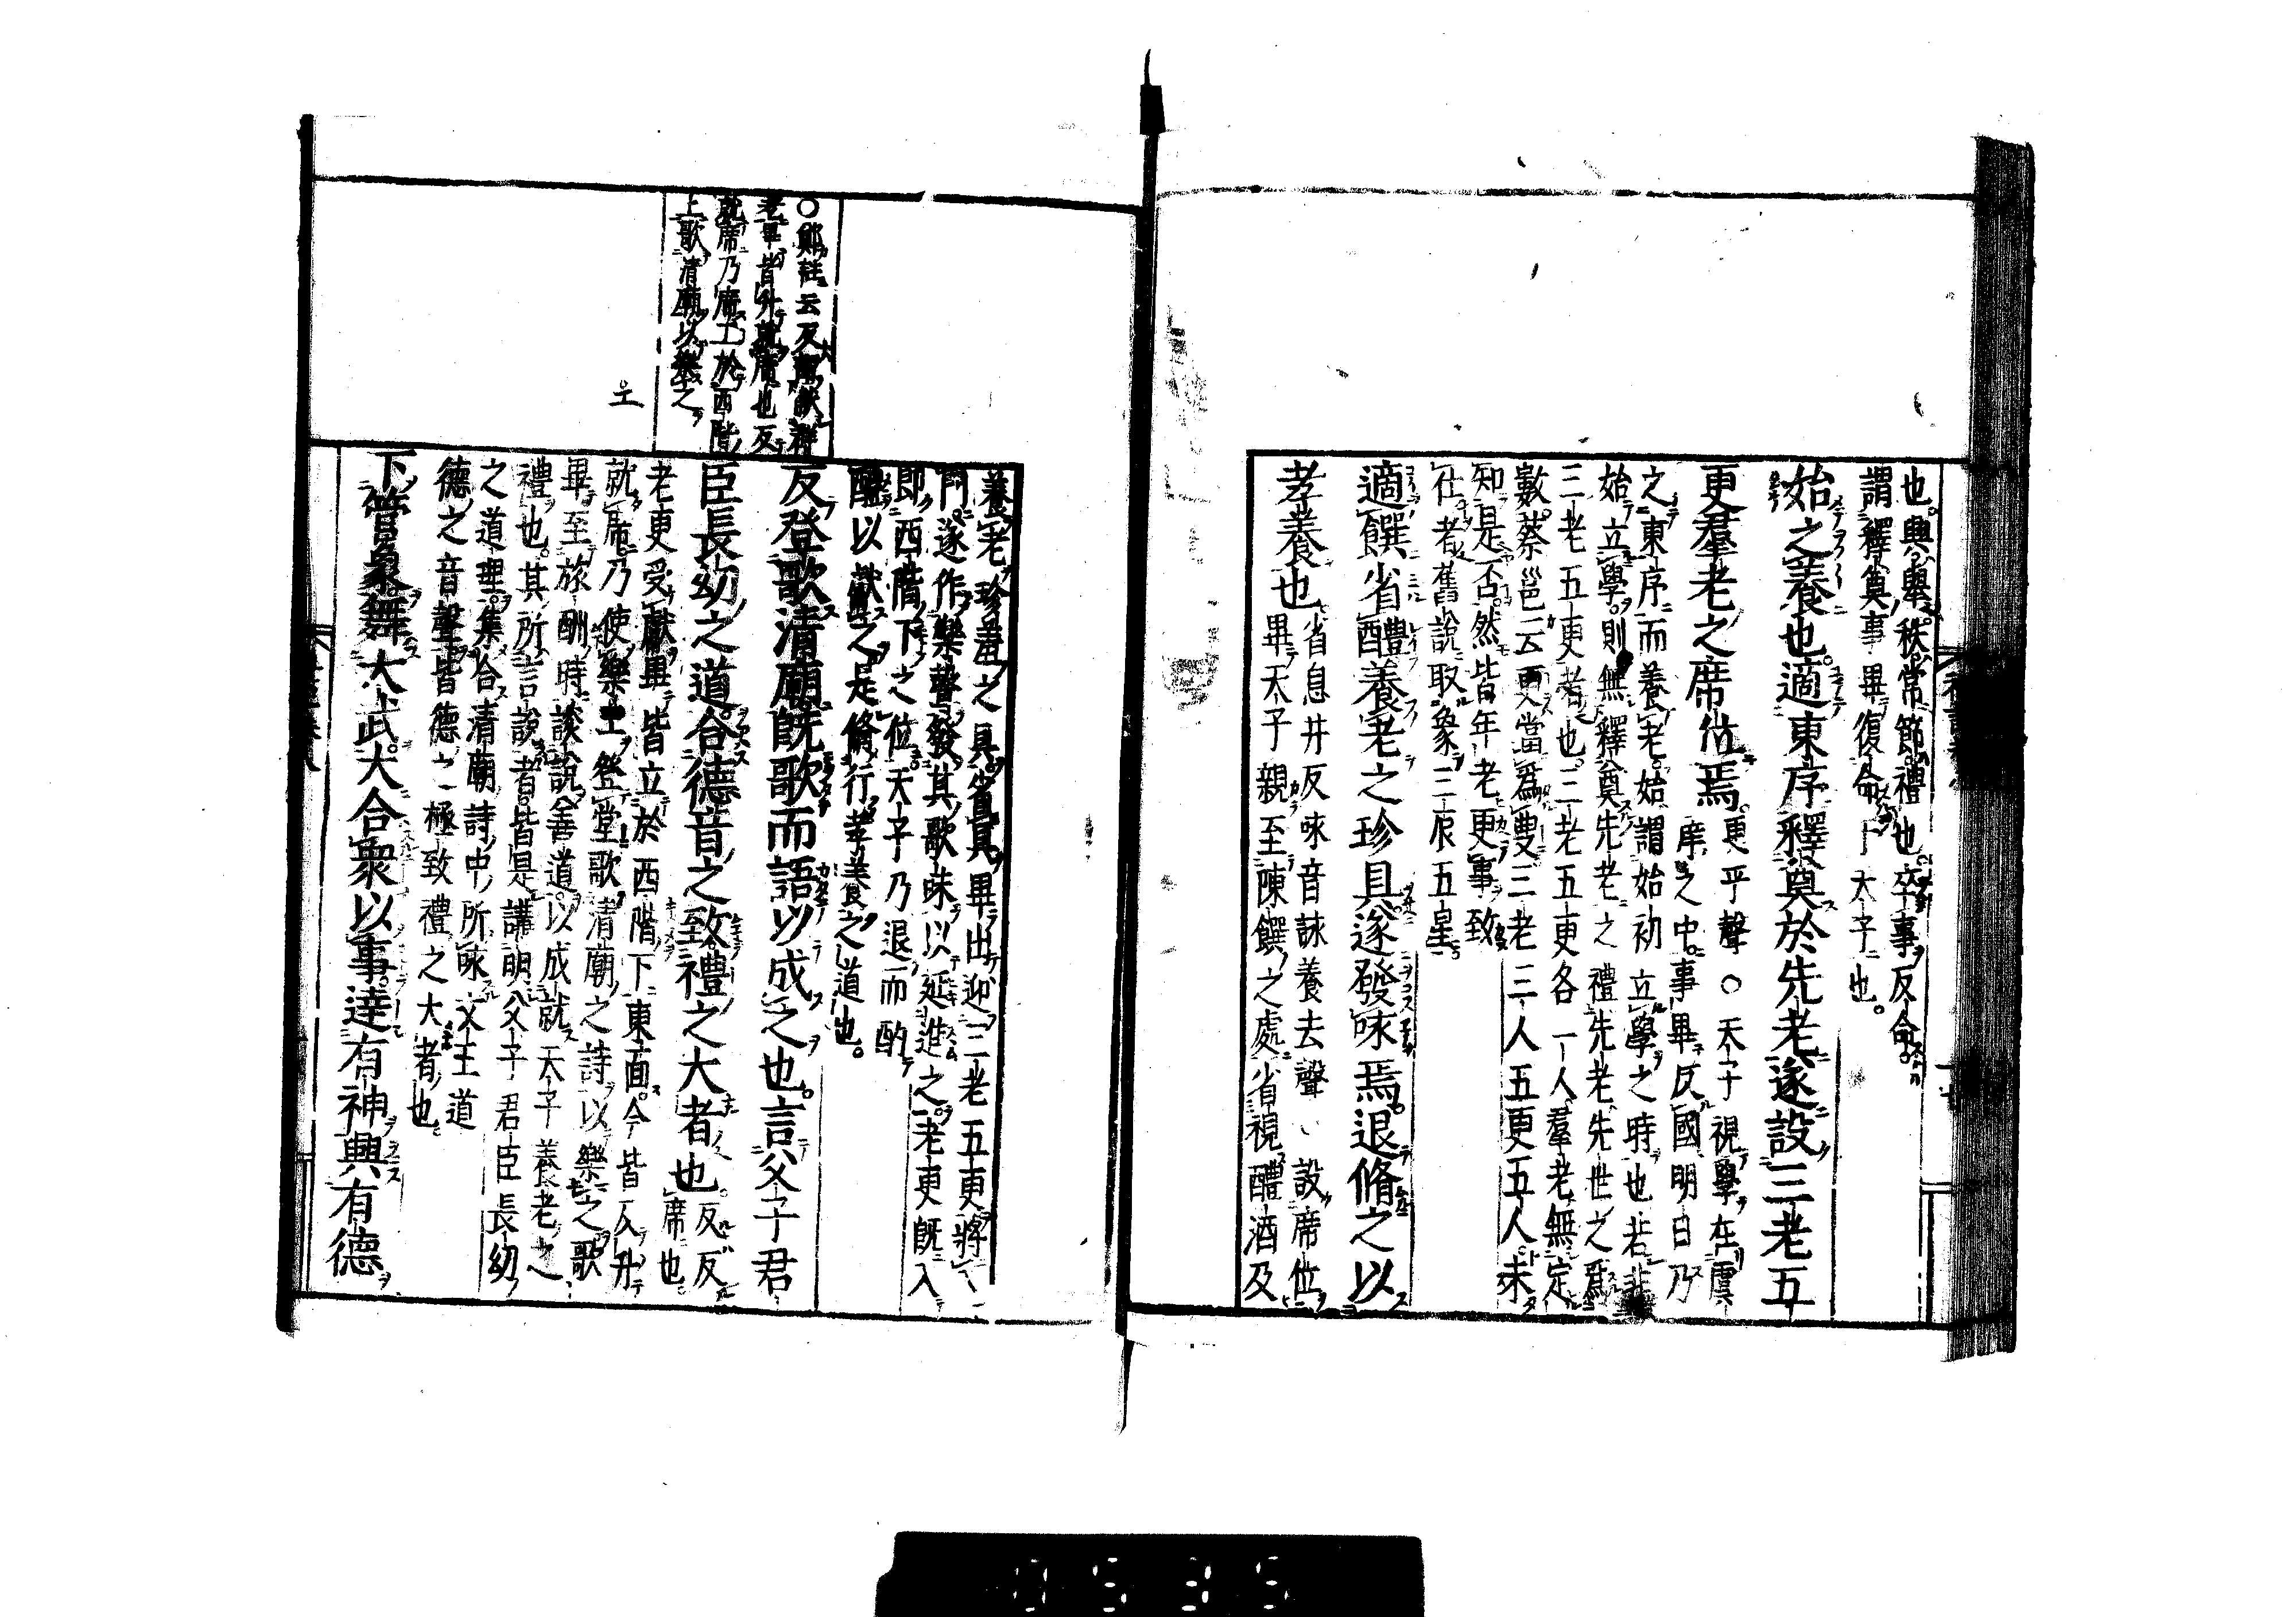 也興舉秩常節禮也卒事反命
謂釋奠事畢復命于天子也
始之養也適東序釋奠於先老遂設三老五
更羣老之席位焉更平聲○天子視學在虞
席之中事畢反國明日乃
之東序而養老始謂始初立學之時也若非
始立學則無釋奠先老之禮先老先世之爲
三老五更者也三老五更各一人羣老無定
數蔡邕云更當爲叟三老三人五更五人未
知是否然皆年老更事致
仕者舊說取象三辰五星
適饌省醴養老之珍具遂發咏焉退脩之以
孝養也省息井反咏音詠養去聲設席位
畢天子親至陳饌之處省視醴酒及
養老珍羞之具省具畢出迎三老五更將入
門遂作樂聲發其歌咏以延進之老更既入
即西階下之位天子乃退而酌
醴以獻之是脩行孝養之道也
反登歌清廟既歌而語以成之也言父子君
臣長幼之道合德音之致禮之大者也反反
席也
老更受獻畢皆立於西階下東面今皆反升
就席乃使樂工登堂歌清廟之詩以樂之歌
畢至旅酬時談說善道以成就天子養老之
禮也其所言說者皆是講明父子君臣長幼
之道理集合清廟詩中所咏文王道
德之音聲皆德之極致禮之大者也
下管象舞大武大合衆以事達有神興有德
○鄭註云反謂獻羣
老畢皆升就席也反
就席乃席工於西階
上歌清廟以樂之